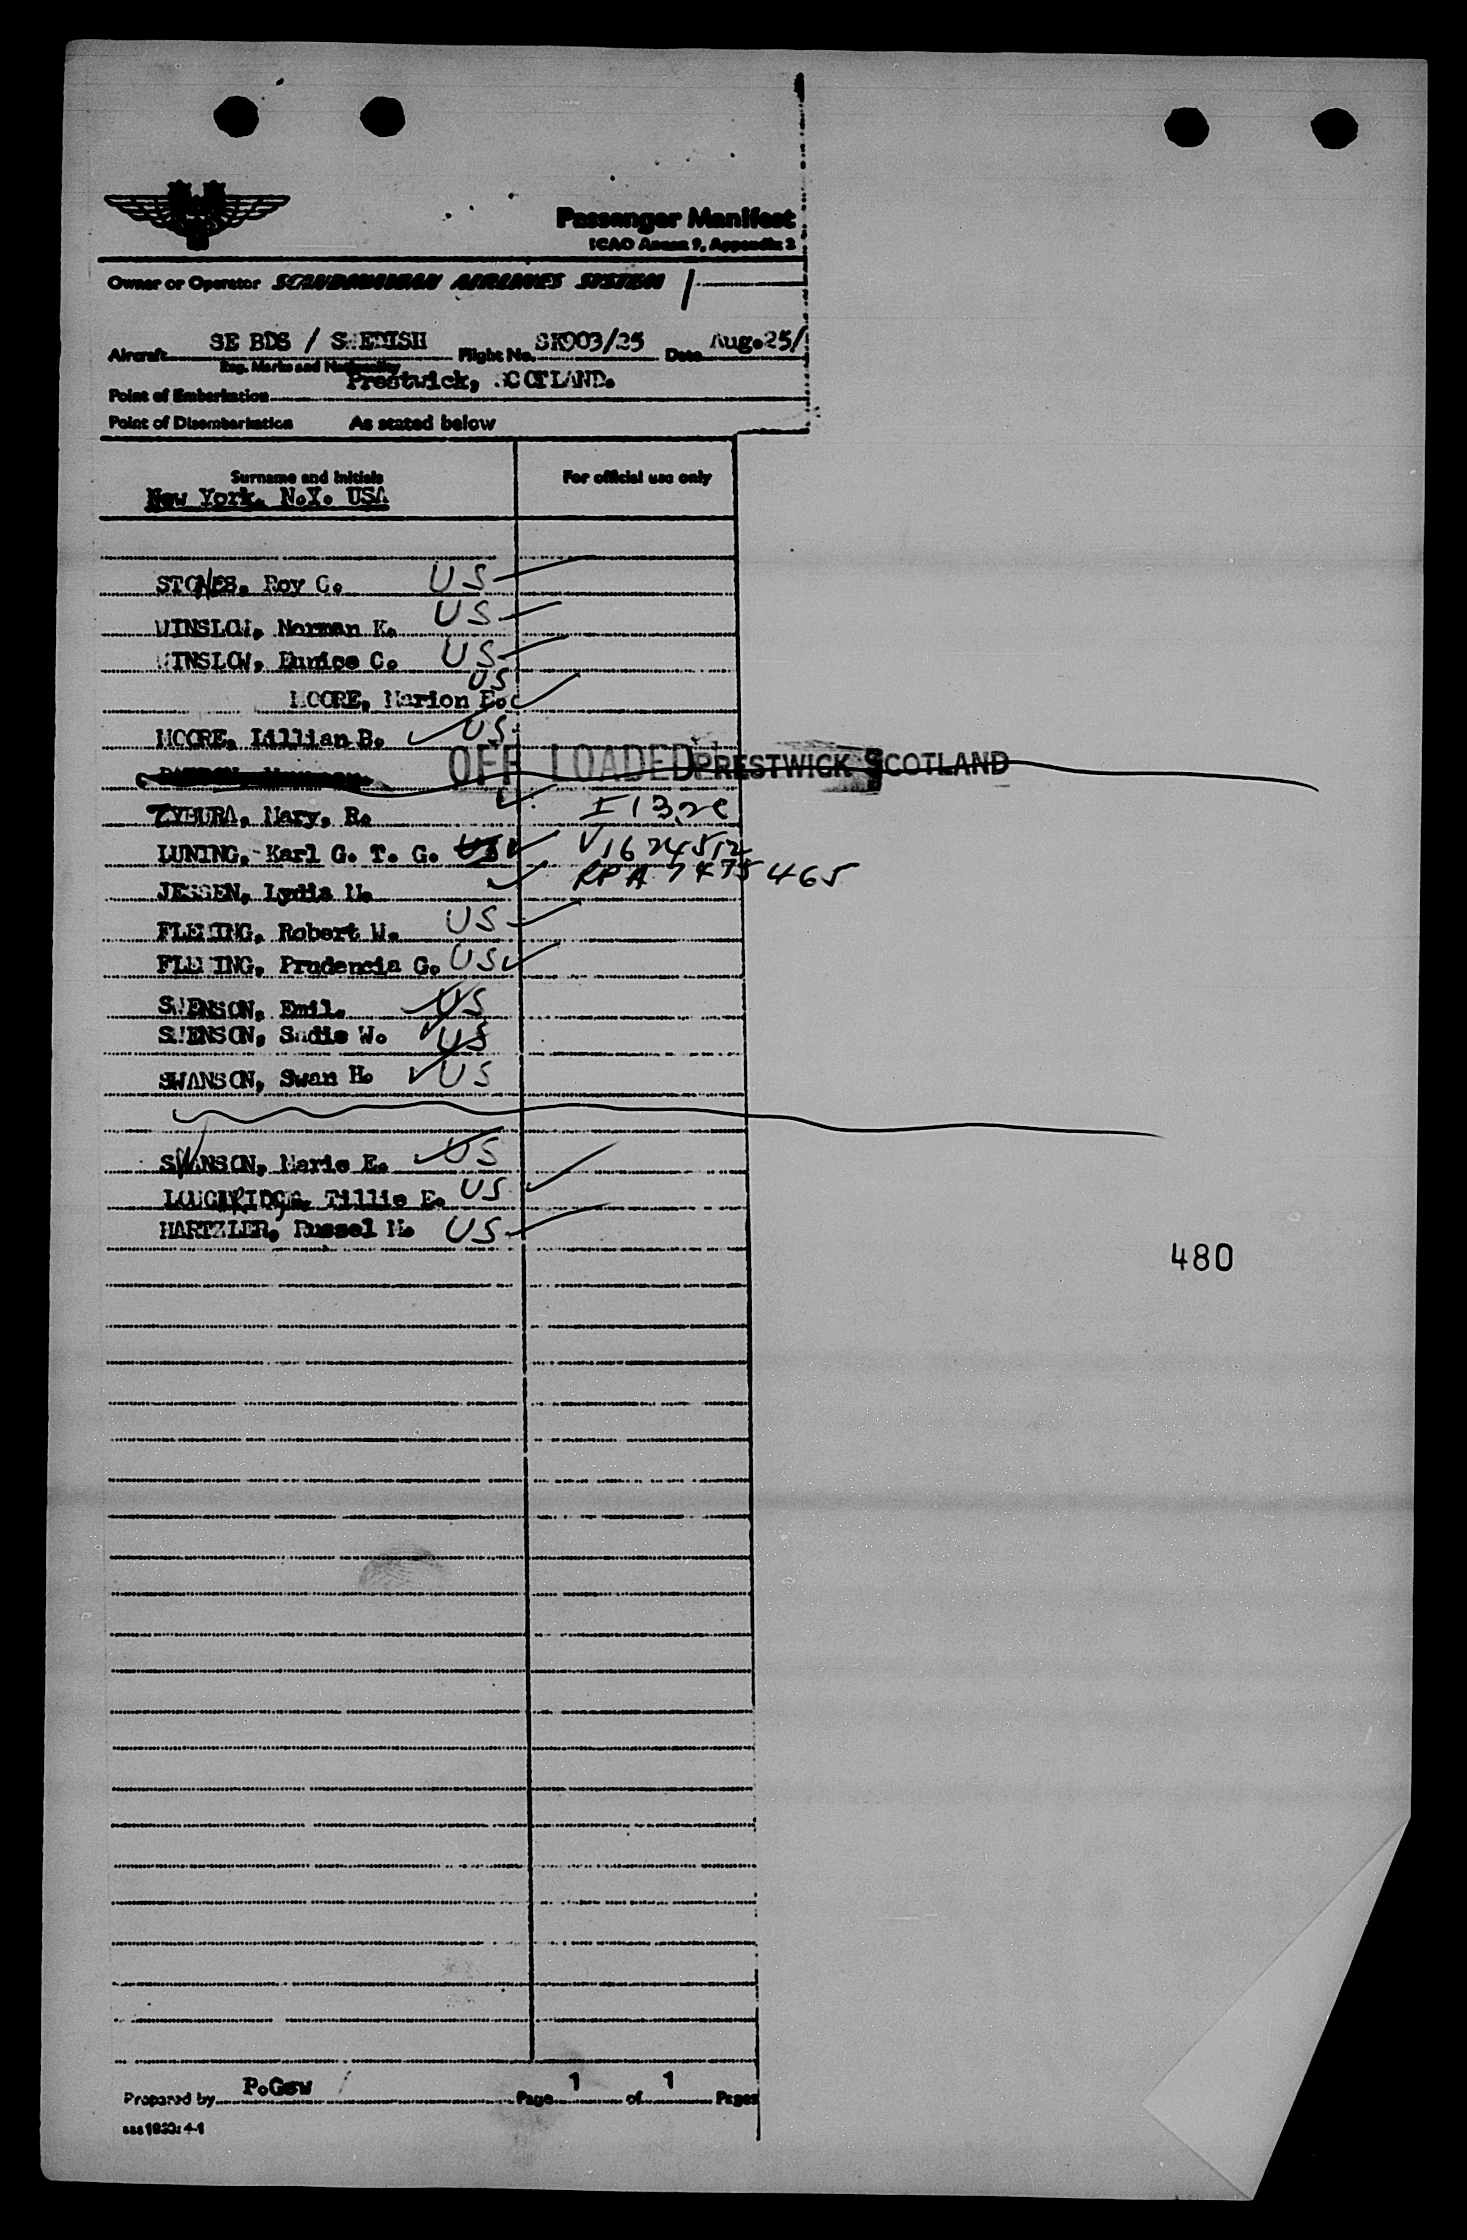 Passenger Manifest
ICAO Annex 9, Appendix 2
Owner or Operator SCANDINAVIAN AIRLINES SYSTEM
Aircraft SE BDS / SWEDISH Flight No. SK903/25 Date Aug.25/
Reg. Marks and Nationality
Point of Embarkation Prestwick, SCOTLAND.
Point of Disembarkation As stated below
Surname and Initials For official use only
New York. N.Y. USA
Roy C. US
WINSLOW, Norman K. US
WINSLOW, Eunice C. US
MOORE, Marion E. US
MOORE, Lillian B. US
OFF LOADED PRESTWICK SCOTLAND
ZYBURA, Mary, R.
LUNING, Karl G. T. G. V1624512
JESSEN, Lydia M. 465
FLEMING, Robert W. US
FLEMING, Prudencia G. US
SWENSON, Emil. US
SWENSON, Sadie W. US
SWANSON, Swan H. US
SWANSON, Marie E. US
Tillie E. US
HARTZLER, Russel M. US
480
Prepared by P.Gow Page 1 of 1 Pages